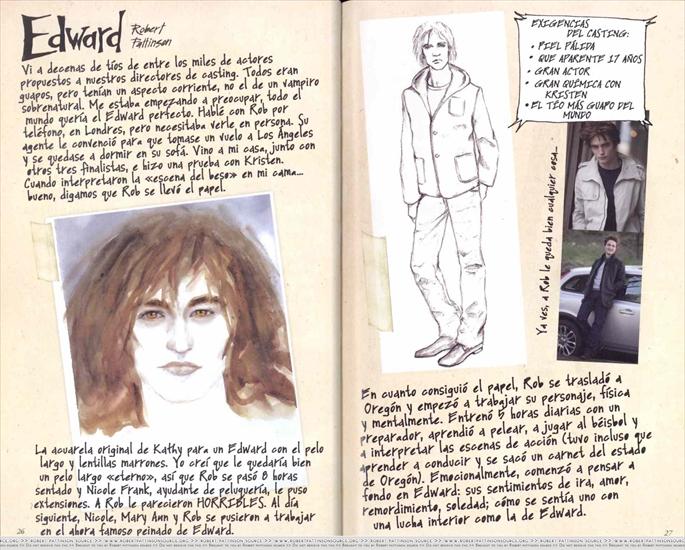 Edward
Robert
Pattinson
Vi a decenas de tíos de entre los miles de actores
propuestos a nuestros directores de casting. Todos eran
guapos, pero tenían un aspecto corriente, no el de un vampiro
sobrenatural. Me estaba empezando a preocupar, todo el
mundo quería el Edward perfecto. Hablé con Rob por
teléfono, en Londres, pero necesitaba verle en persona. Su
agente le convenció para que tomase un vuelo a Los Ángeles
y se quedase a dormir en su sofá. Vino a mi casa, junto con
otros tres finalistas, e hizo una prueba con Kristen.
Cuando interpretaron la «escena del beso» en mi cama...
bueno, digamos que Rob se llevó el papel.
La acuarela original de Kathy para un Edward con el pelo
largo y lentillas marrones. Yo creí que le quedaría bien
un pelo largo «eterno», así que Rob se pasó 8 horas
sentado y Nicole Frank, ayudante de peluquería, le puso
extensiones. A Rob le parecieron HORRIBLES. Al día
siguiente, Nicole, Mary Ann y Rob se pusieron a trabajar
en el ahora famoso peinado de Edward.
26
EXIGENCIAS
DEL CASTING:
• PIEL PÁLIDA
• QUE APARENTE 17 AÑOS
• GRAN ACTOR
• GRAN QUÍMICA CON
KRISTEN
• EL TÍO MÁS GUAPO DEL
MUNDO
Ya ves, a Rob le queda bien cualquier cosa...
En cuanto consiguió el papel, Rob se trasladó a
Oregón y empezó a trabajar su personaje, física
y mentalmente. Entrenó 5 horas diarias con un
preparador, aprendió a pelear, a jugar al béisbol y
a interpretar las escenas de acción (tuvo incluso que
aprender a conducir y se sacó un carnet del estado
de Oregón). Emocionalmente, comenzó a pensar a
fondo en Edward: sus sentimientos de ira, amor,
remordimiento, soledad; cómo se sentía uno con
una lucha interior como la de Edward.
27
WWW.ROBERTPATTINSONSOURCE.ORG